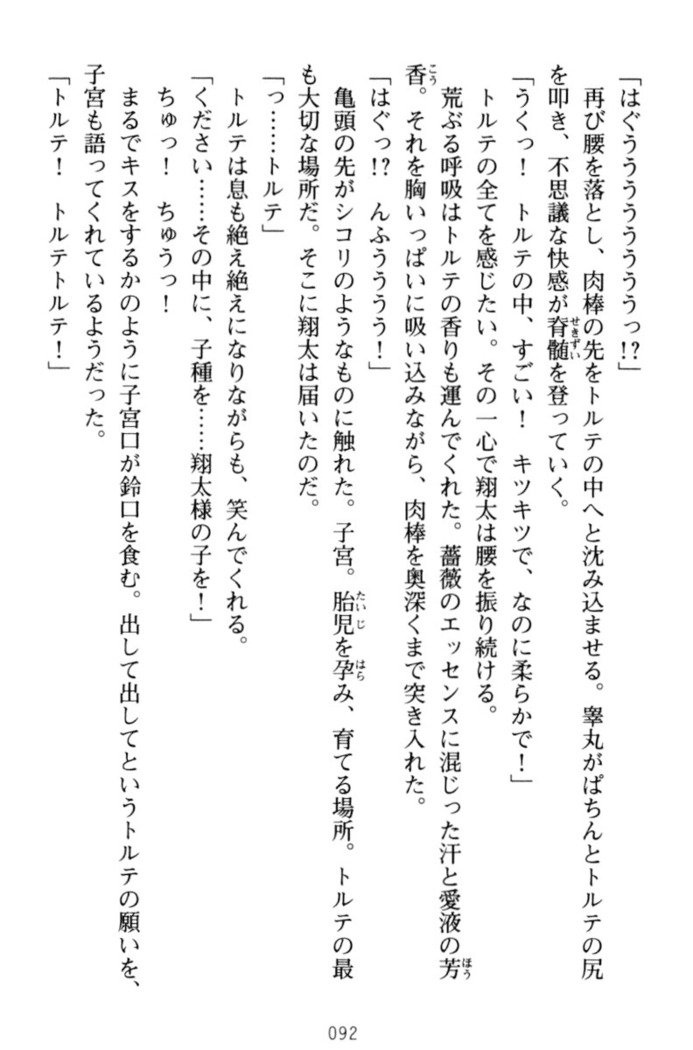 「はぐううううううううっ!?」
再び腰を落とし、肉棒の先をトルテの中へと沈み込ませる。睾丸がぱちんとトルテの尻
を叩き、不思議な快感が脊髄を登っていく。
「うくっ！　トルテの中、すごい！　キツキツで、なのに柔らかで！」
トルテの全てを感じたい。その一心で翔太は腰を振り続ける。
荒ぶる呼吸はトルテの香りも運んでくれた。薔薇のエッセンスに混じった汗と愛液の芳
香。それを胸いっぱいに吸い込みながら、肉棒を奥深くまで突き入れた。
「はぐっ!?　んふうううう！」
亀頭の先がシコリのようなものに触れた。子宮。胎児を孕み、育てる場所。トルテの最
も大切な場所だ。そこに翔太は届いたのだ。
「っ……トルテ」
トルテは息も絶え絶えになりながらも、笑んでくれる。
「ください……その中に、子種を……翔太様の子を！」
ちゅっ！　ちゅうっ！
まるでキスをするかのように子宮口が鈴口を食む。出して出してというトルテの願いを、
子宮も語ってくれているようだった。
「トルテ！　トルテトルテ！」
092